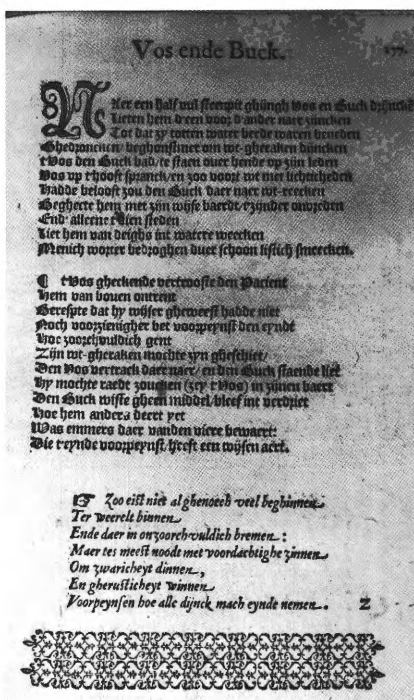 Vos ende Buck.
177.
Naer een half vul steenpit ghijngh Vos en Buck drijncken
Lieten hem d'een voor d'ander naer zijncken
Tot dat zy totten water beede waren beneden
Ghedroncken, beghonstmen om wt-gheraken dijncken
t'Vos den Buck bad, te staen over hende op zijn leden
Vos op t'hooft spranck, en zoo voort wt met lichticheden
Hadde belooft zou den Buck daer naer wt-reecken
Begheerte hem met zijn wijse baerdt, t'zijnder onvreden
End' alleene t' dien steden
Liet hem van deighs int watere weecken
Menich wordter bedroghen duer schoon listich smeecken.
¶ t'Vos gheckende vertrooste den Pacient
Hem van boven ontrent
Berespte dat hy wijser gheweest hadde niet
Noch voorzienigher bet voorpeynst den eynde
Hoe zoorchvuldich gent
Zijn wt-gheraken mochte zyn gheschiet,
Den Vos vertrack daer naer, en den Buck staende liet
Hy mochte raedt zoucken (zey t'Vos) in zijnen baert
Den Buck wiste gheen middel, bleef int verdriet
Hoe hem anders deert yet
Was emmers daer vanden viere bewaert:
Die t'eynde voorpeynst, heeft een wijsen aert.
☞ Zoo eist niet al ghenoech veel beghinnen
Ter weerelt binnen
Ende daer in onzoorchvuldich bremen:
Maer tes meest noodt met voordachtighe zinnen
Om zwaricheyt dinnen,
En gherusticheyt winnen
Voorpeynsen hoe alle dijnck mach eynde nemen.
Z